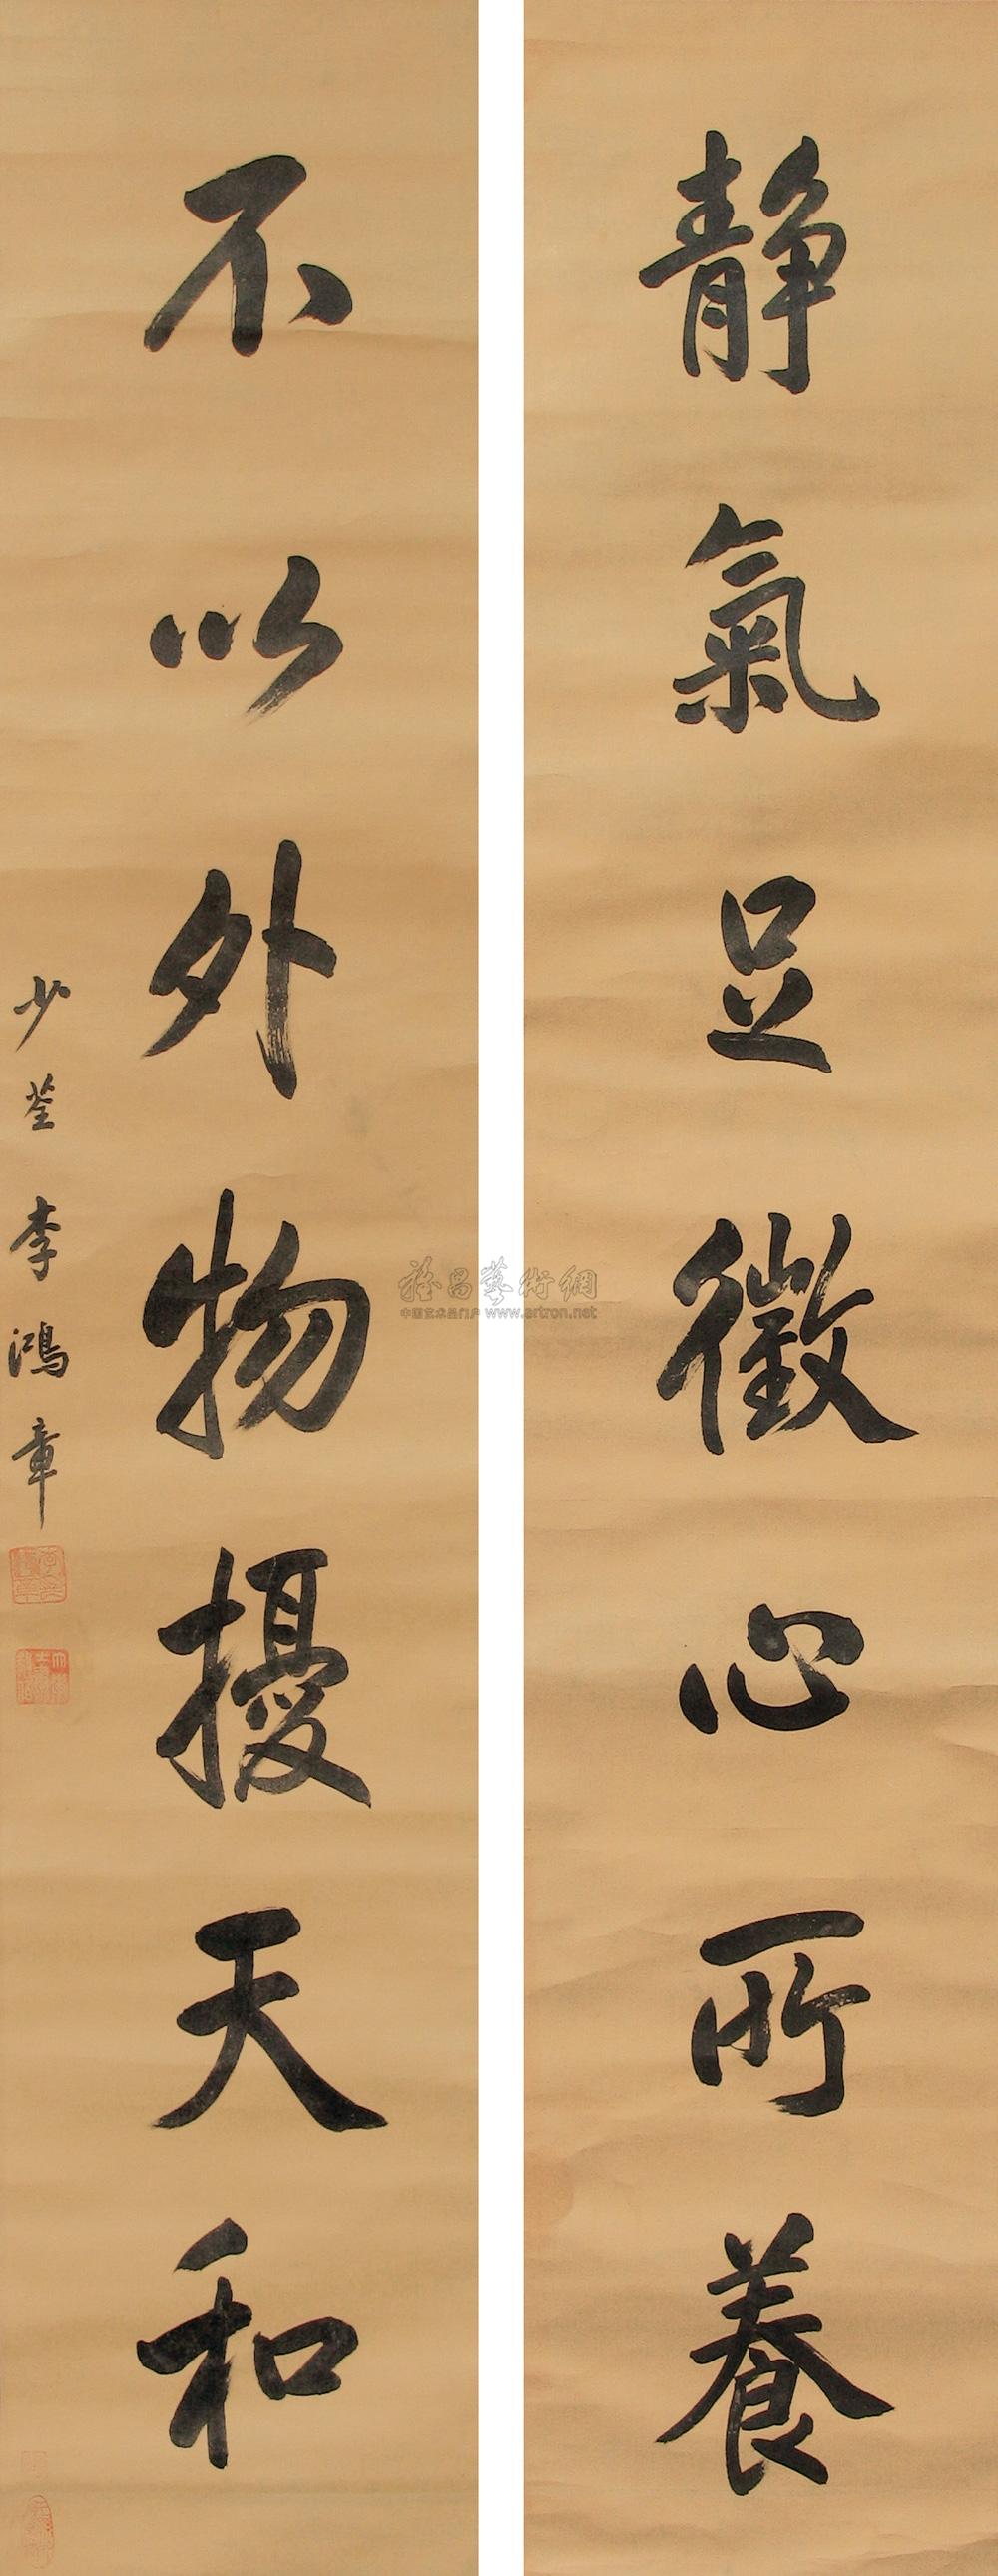 静氣足徵心所養
不以外物擾天和
少荃李鴻章
雅昌藝術網
中国艺术品门户 www.artron.net